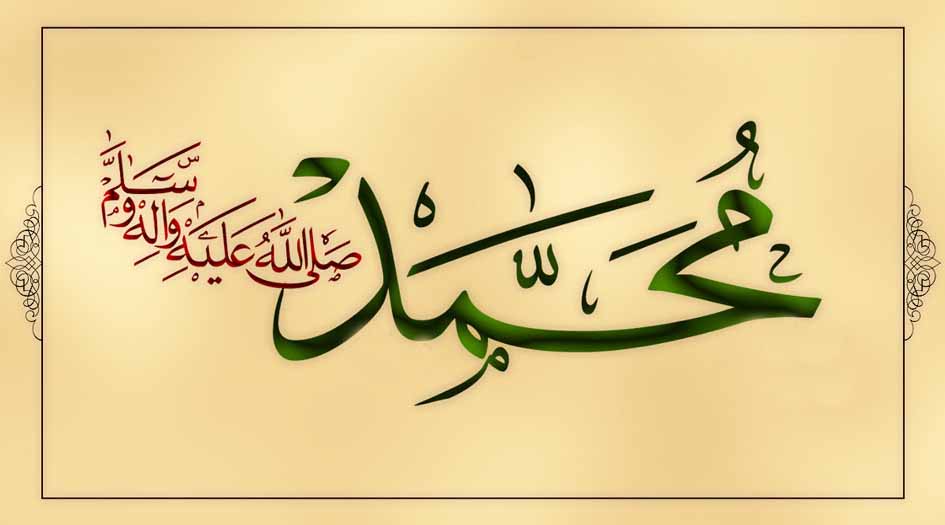 مُحَمَّد
صَلَّی اللّٰهُ عَلَیْهِ وَاٰلِهٖ وَسَلَّمَ